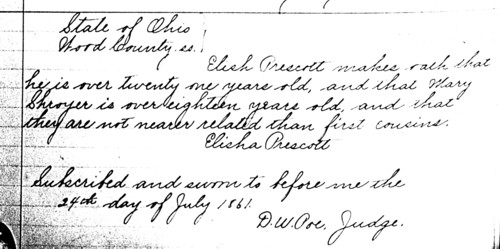 State of Ohio
Wood County ss.
Elish Prescott makes oath that
he is over twenty one years old, and that Mary
Shroyer is over eighteen years old, and that
they are not nearer related than first cousins.
Elisha Prescott
Subscribed and sworn to before me the
24th day of July 1861.
D.W. Poe. Judge.